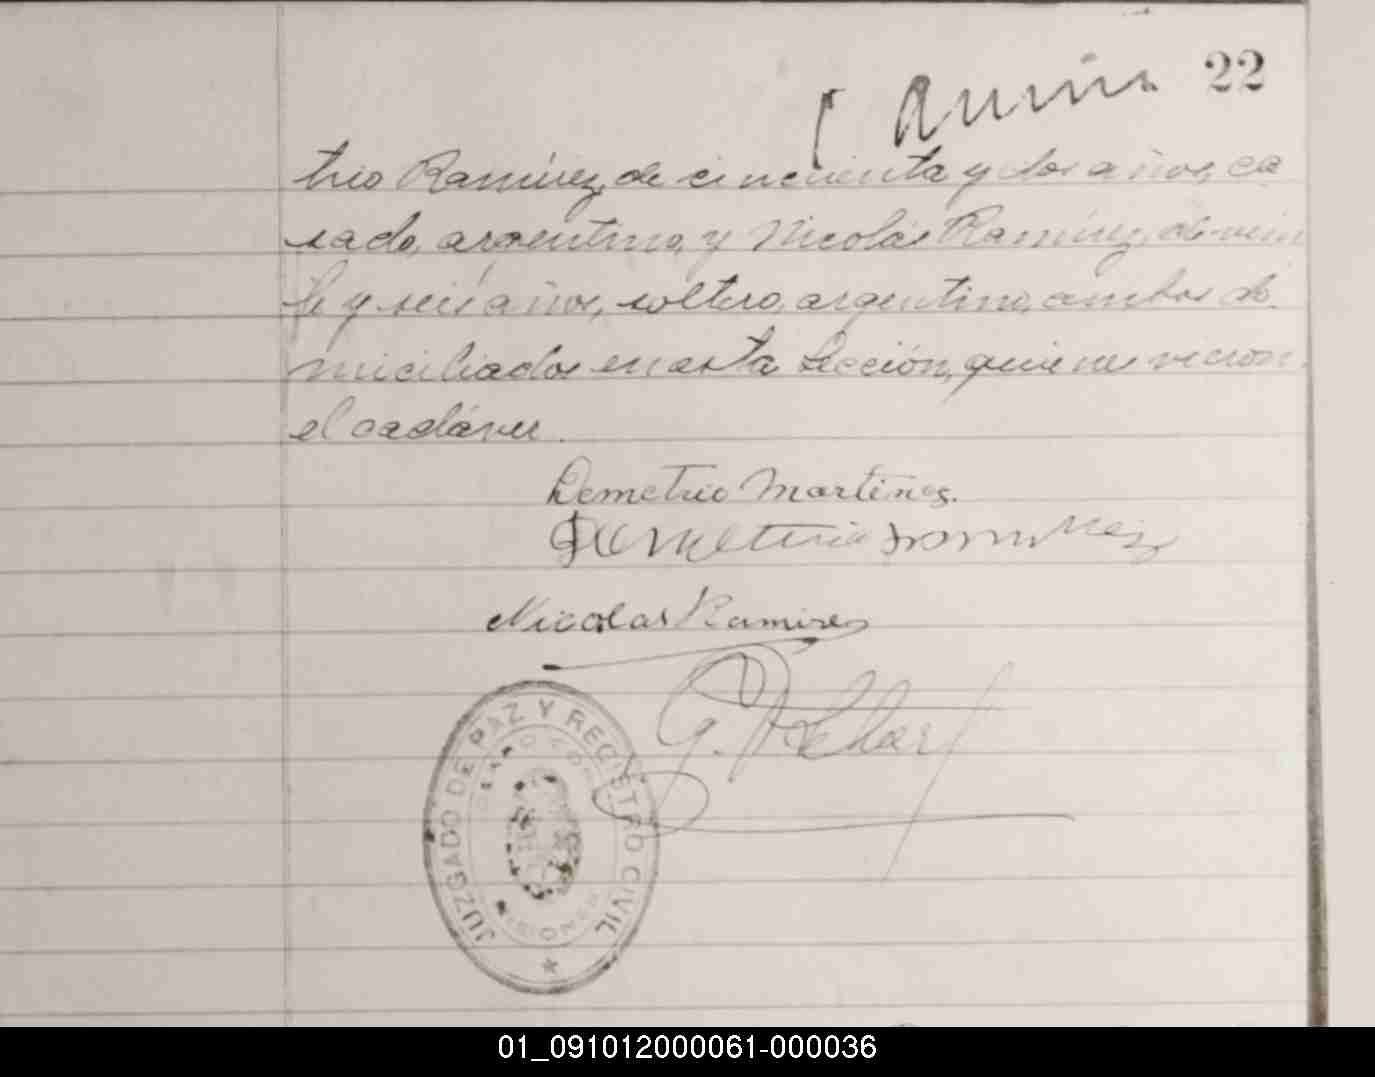 22
trio Ramírez, de cincuenta y dos años, ca
sado, argentino, y Nicolás Ramírez, de vein
te y seis años, soltero, argentino, ambos do
miciliados en esta Sección, quienes vieron
el cadáver.
Demetrio Martines.
Demetrio Ramirez
Nicolas Ramires
G.
JUZGADO DE PAZ Y REGISTRO CIVIL
MISIONES
01_091012000061-000036